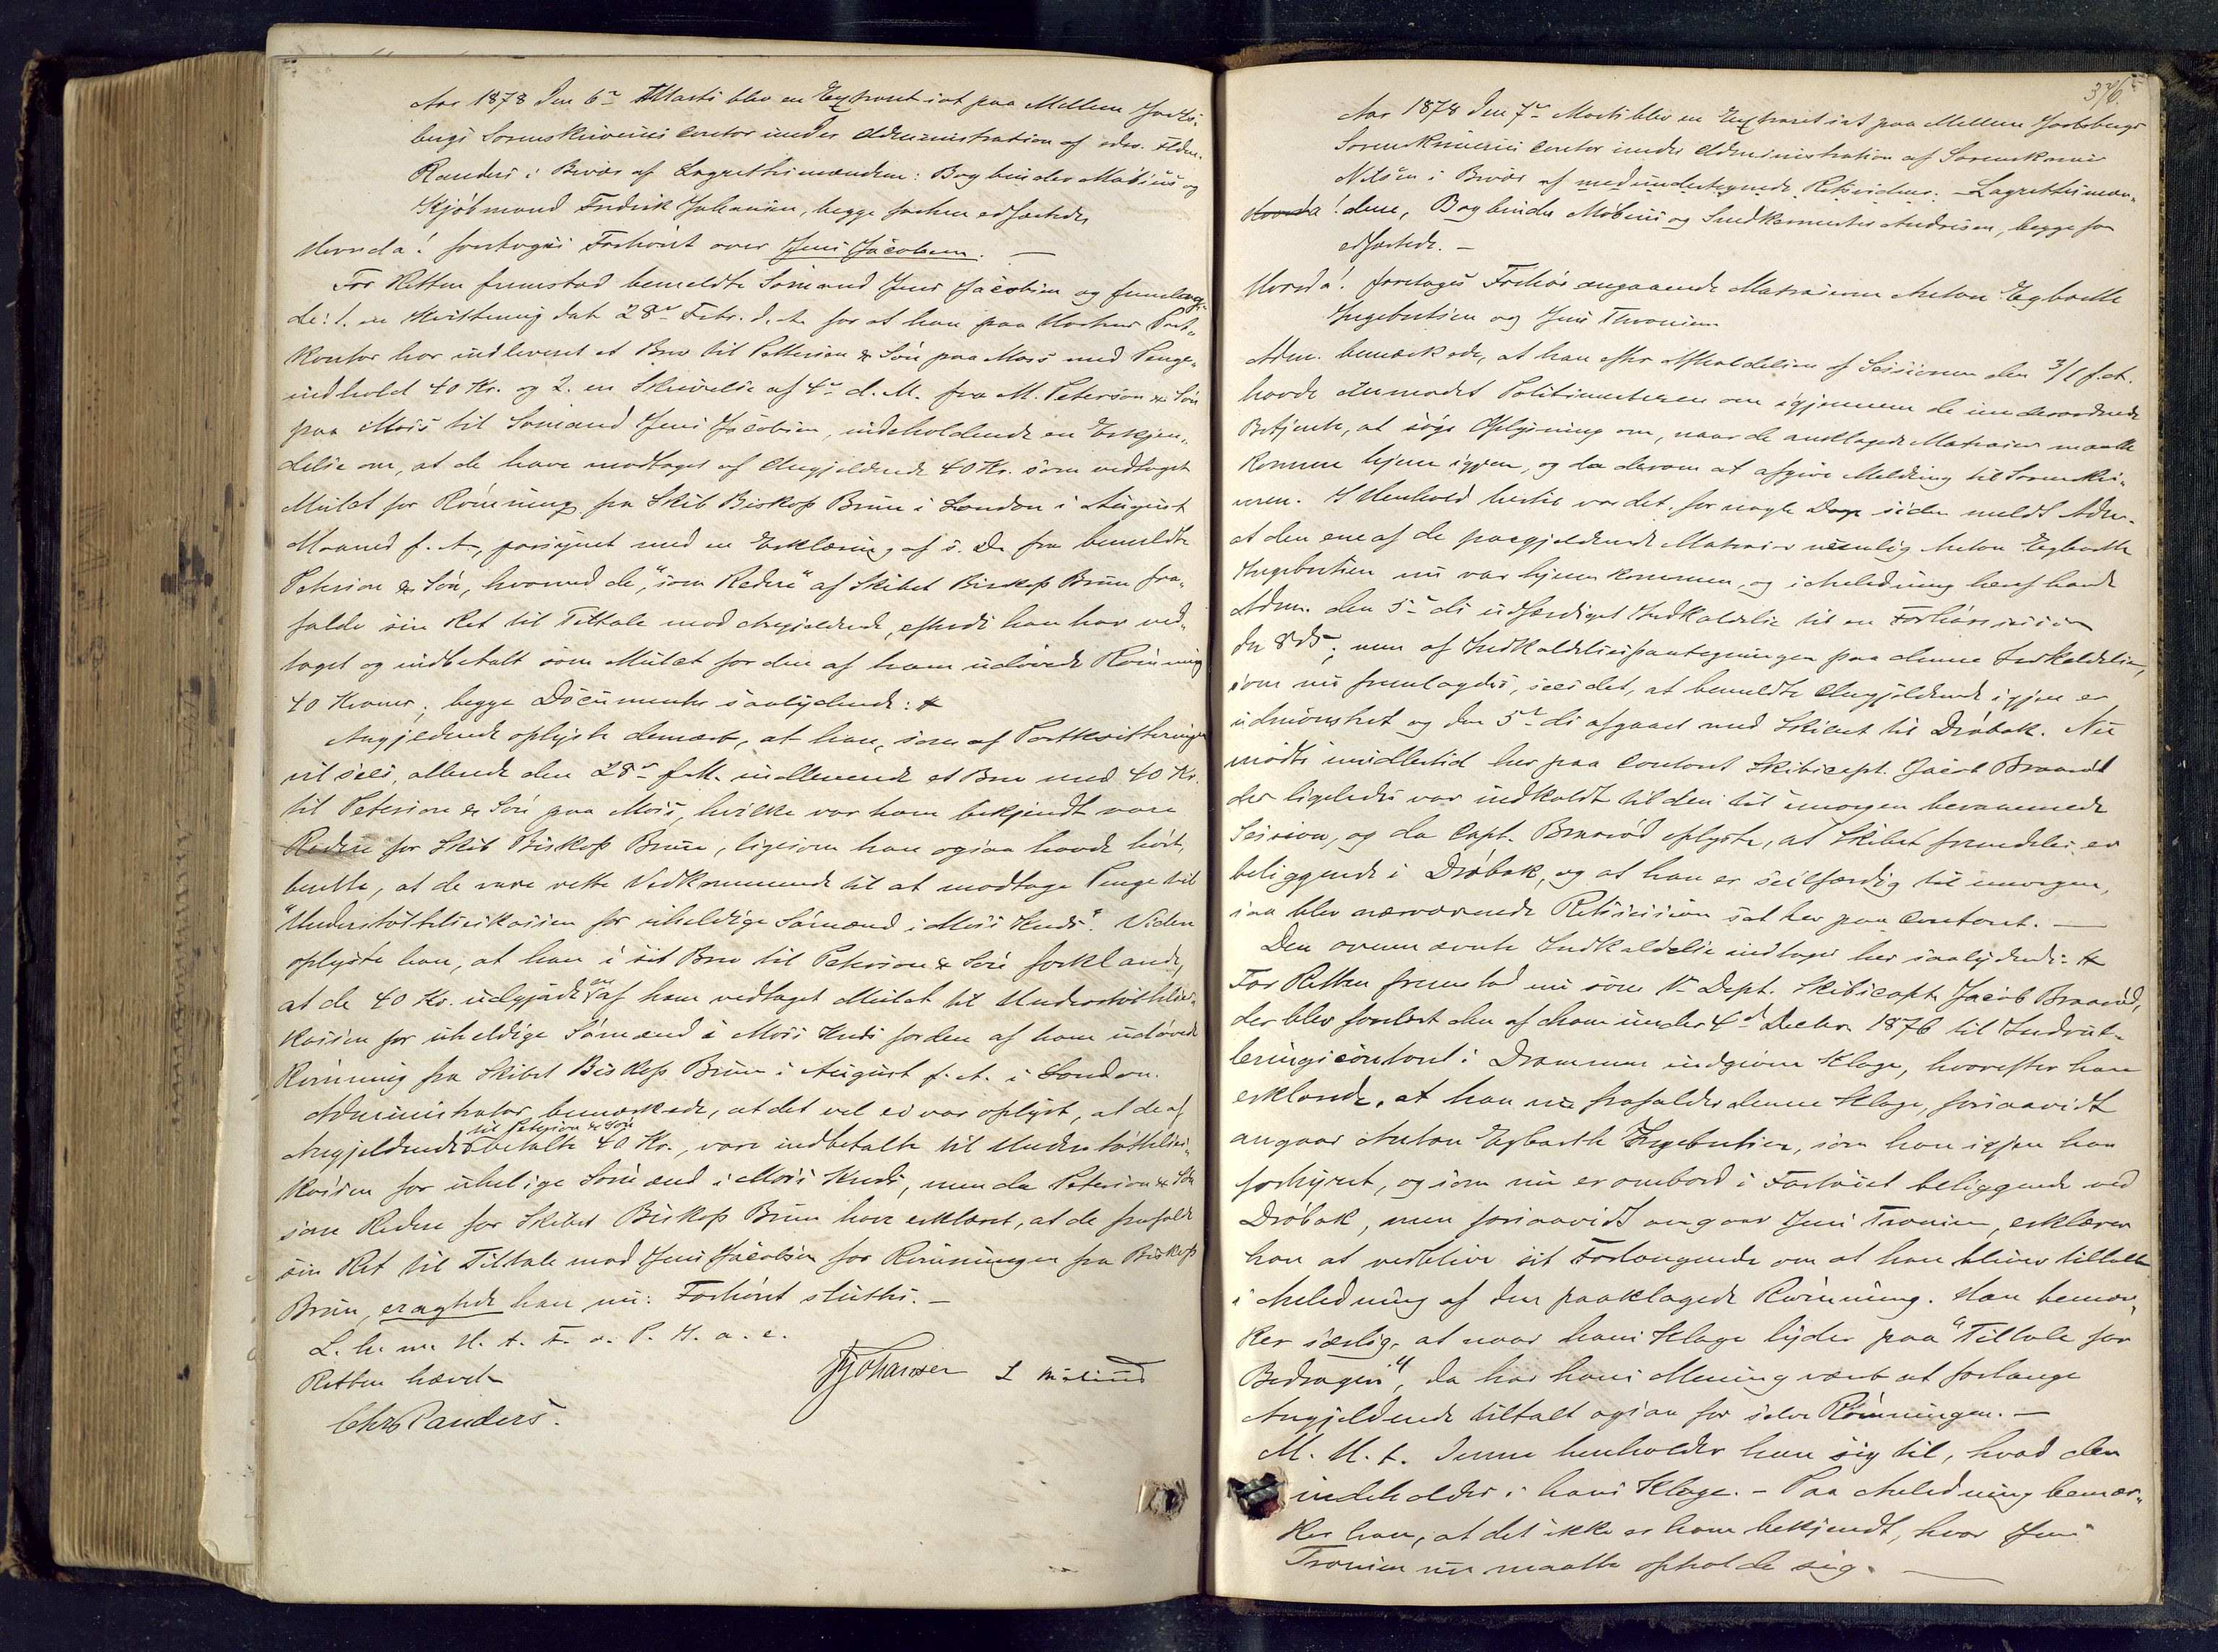 Aar 1878 den 6te Marti blev en Extraret sat paa Mellem Jarls-
bergs Sorenskriveries Contor under Administration af edsv. Fuldm.
Randers i Overvær af Lagrettesmændene: Bogbinder Møbius og
Kjøbmand Fredrik Johansen, begge forhen edfæstede
Hvorda! foretoges Forhør over Jens Jacobsen. —
For Retten fremstod bemeldte Sømand Jens Jacobsen og fremlag-
de: 1. en Kvittering dat 28de Febr. d. A. for at han paa Hortens Post-
kontor har indleveret et Brev til Petterson & Søn paa Moss med Penge-
indhold 40 Kr. og 2. en Skrivelse af 4de d. M. fra M. Peterson & Søn
paa Moss til Sømand Jens Jacobsen, indeholdende en Erkjen-
delse om, at de have modtaget af Angjeldende 40 Kr. som vedtaget
Mulct for Rømning fra Skib Biskop Brun i London i August
Maaned f. A., forsynet med en Erklæring af s. D. fra bemeldte
Peterson & Søn, hvorved de, "som Redere" af Skibet Biskop Brun fra-
falde sin Ret til Tiltale mod Angjeldende, efterdi han har ved-
taget og indbetalt som Mulct for den af ham udøvede Rømning
40 Kroner; begge Documenter saalydende: #
Angjeldende oplyste dernæst, at han, som af Postkvitteringen
vil sees, allerede den 28de f. M. indleverede et Brev med 40 Kr.
til Peterson & Søn paa Moss, hvilke var ham bekjendt være
Redere for Skib Biskop Brun, ligesom han ogsaa havde hørt,
at de vare rette Vedkommende til at modtage Penge til
"Understøttelseskassen for uheldige Sømænd i Moss Kreds". Videre
oplyste han, at han i sit Brev til Peterson & Søn forklarede,
at de 40 Kr. udgjorde en af ham vedtaget Mulct til Understøttelses-
kassen for uheldige Sømænd i Moss Kreds for den af ham udøvede
Rømning fra Skibet Biskop Brun i August f. A. i London.
Administrator bemærkede, at det vel ei var oplyst, at de af
Angjeldende til Peterson & Søn betalte 40 Kr., vare indbetalte til Understøttelses-
kassen for uheldige Sømænd i Moss Kreds, men da Peterson & Søn
som Redere for Skibet Biskop Brun have erklæret, at de frafalde
sin Ret til Tiltale mod Jens Jacobsen for Rømningen fra Biskop
Brun, eragtede han nu: Forhøret sluttes. —
Retten hævet
FJohansen L Møbius
Chr Randers.
376
Aar 1878 den 7de Marti blev en Extraret sat paa Mellem Jarlsbergs
Sorenskriveries Contor under Administration af Sorenskriver
Nilsen i Overvær af medundertegnede Retsvidner: Lagrettesmæn-
Hvorda! dene, Bogbinder Møbius og Andresen, begge for
edfæstede. —
Hvorda! foretoges Forhør angaaende Matroserne Anton Egbarth
Ingebretsen og Jens Thronsen
Adm. bemærkede, at han efter Afholdelsen af Sessionen den 3/1 f. A.
havde anmodet Politimesteren om igjennem de underordnede
Betjente, at søge Oplysning om, naar de anklagede Matroser maatte
komme hjem igjen, og da derom at afgive Melding til Sorenskri-
veren. I Henhold hertil var det for nogle Dage siden meldt Adm.
at den ene af de paagjeldende Matroser nemlig Anton Egbarth
Ingebretsen nu var hjemkommen, og i Anledning heraf havde
Adm. den 5te ds udfærdiget Indkaldelse til en Forhørssession
den 8 ds; men af Indkaldelsespaategningen paa denne Indkaldelse,
som nu fremlagdes, sees det, at bemeldte Angjeldende igjen er
udmønstret og den 5te ds afgaaet med Skibet til Drøbak. Nu
mødte imidlertid her paa Contoret Skibscapt. Jacob Braarød
der ligeledes var indkaldt til den til imorgen berammede
Session, og da Capt. Braarød oplyste, at Skibet fremdeles er
beliggende i Drøbak, og at han er seilfærdig til imorgen,
saa blev nærværende Retssession sat her paa Contoret. —
Den ovennævnte Indkaldelse indtages her saalydende: #
For Retten fremstod nu som 1te Dept. Skibscapt. Jacob Braarød,
der blev forelæst den af ham under 4de Decbr. 1876 til Indrul-
leringscontoret i Drammen indgivne Klage, hvorefter han
erklærede, at han nu frafalder denne Klage, forsaavidt
angaar Anton Egbarth Ingebretsen, som han igjen har
forhyret, og som nu er ombord i Fartøiet beliggende ved
Drøbak, men forsaavidt angaar Jens Tronsen, erklærer
han at vedblive sit Forlangende om at han bliver tiltalt
i Anledning af den paaklagede Rømning. Han bemær-
ker særlig, at naar hans Klage lyder paa "Tiltale for
Bedrageri", da har hans Mening været at forlange
Angjeldende tiltalt ogsaa for selve Rømningen. —
M. H. t. denne henholder han sig til, hvad der
indeholdes i hans Klage. — Paa Anledning bemær-
ker han, at det ikke er ham bekjendt, hvor Jens
Tronsen nu maatte opholde sig. —